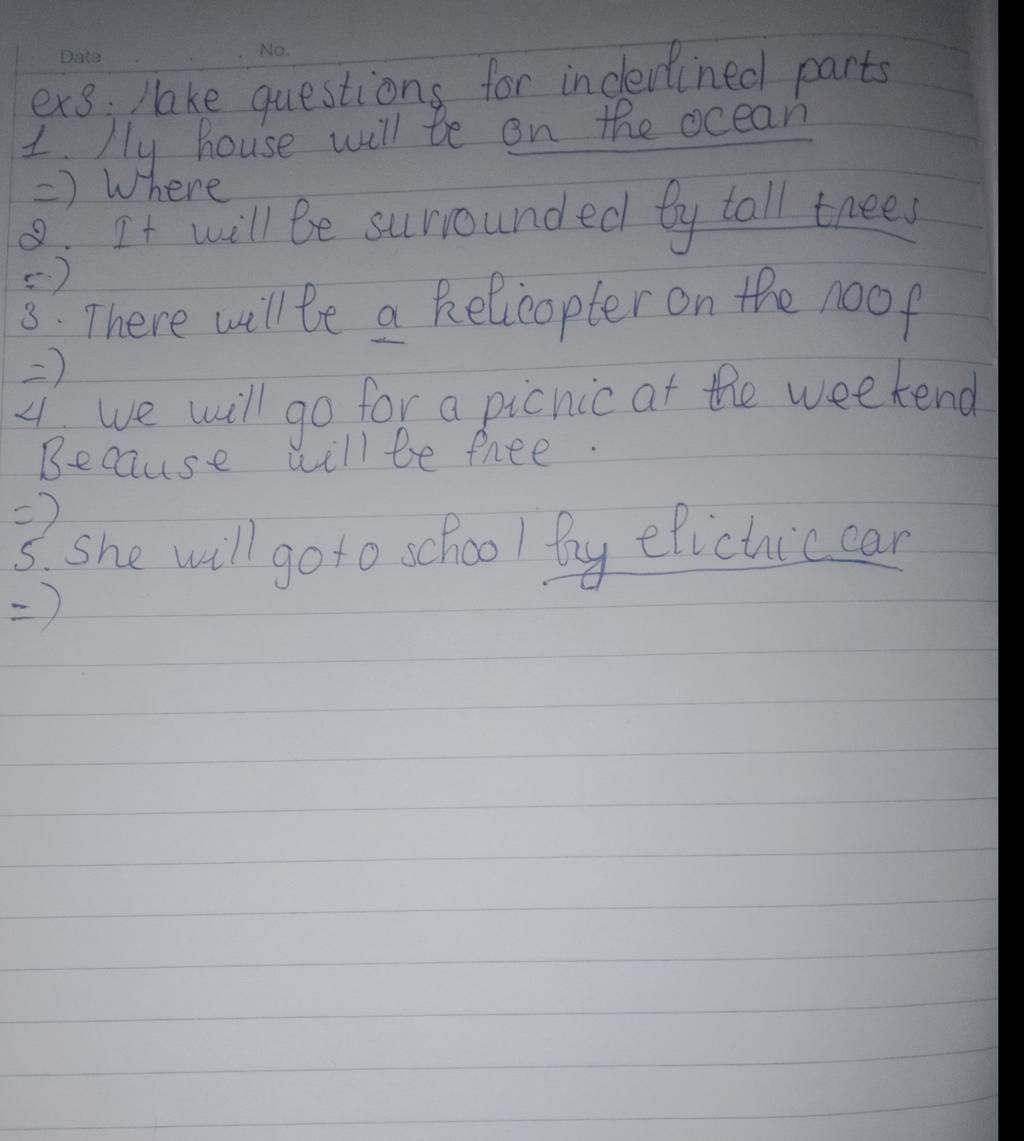 Date No.
ex3: Make questions for inderlined parts
1. My house will be on the ocean
=) Where
2. It will be surrounded by tall trees
=)
3. There will be a helicopter on the roof
=)
4. we will go for a picnic at the weekend
Because will be free.
=)
5. She will go to school by elictric car
=)